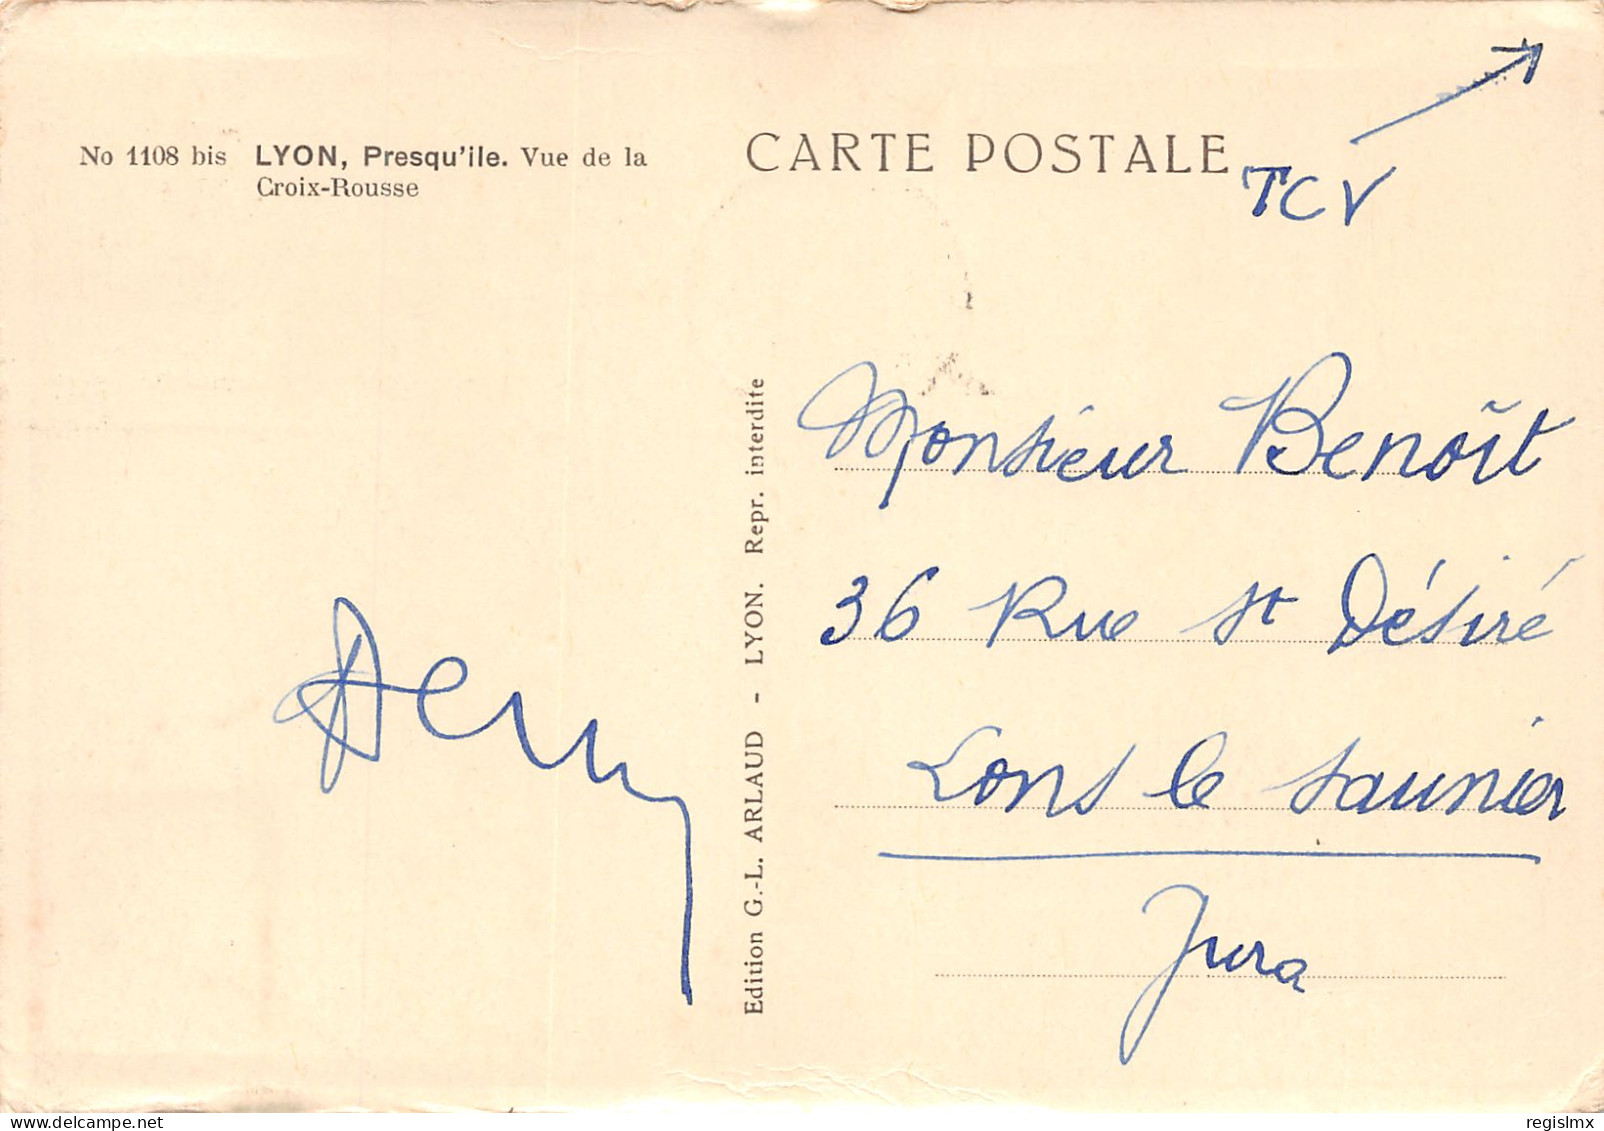 No 1108 bis LYON, Presqu'ile. Vue de la
Croix-Rousse
CARTE POSTALE
TCV
Edition G.-L. ARLAUD - LYON. Repr. interdite
Monsieur Benoît
36 Rue St Désiré
Lons le Saunier
Jura
delcampe.net
regislmx